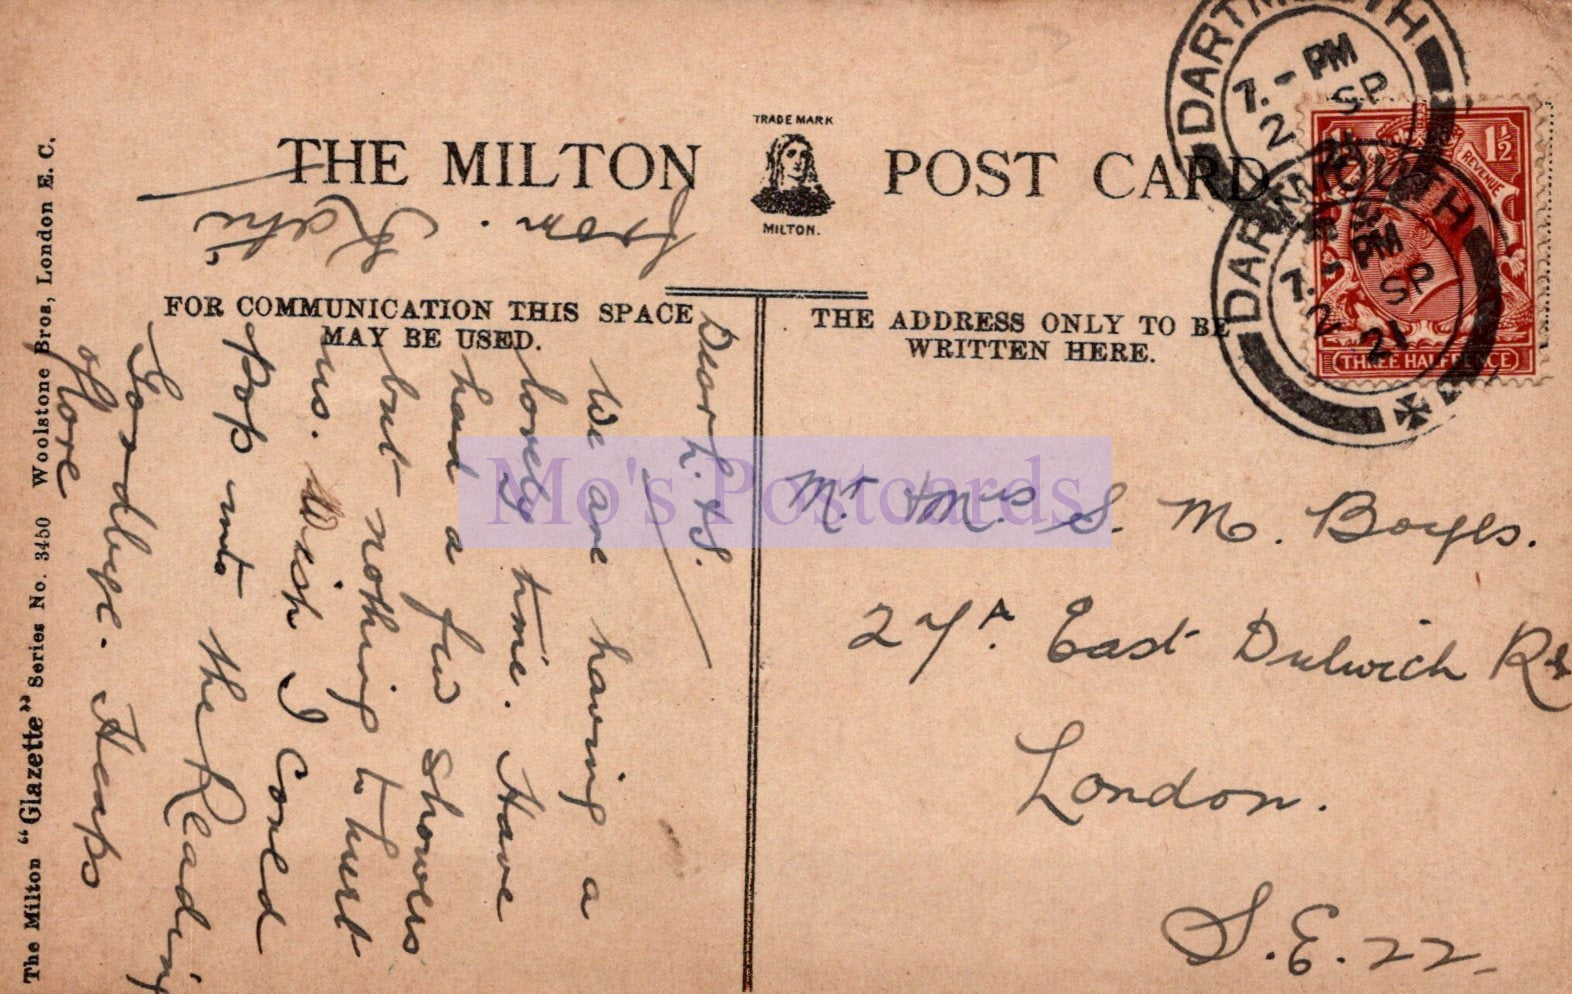 TRADE MARK
THE MILTON POST CARD
MILTON.
FOR COMMUNICATION THIS SPACE
MAY BE USED.
THE ADDRESS ONLY TO BE
WRITTEN HERE.
Dear L. & S.
We are having a
lovely time. Have
had a few showers
but nothing to hurt
us. Wish I could
pop into the Reading
Lordlye. Heaps
of love
from
Mr & Mrs S. M. Boyes.
27A. East Dulwich Rd
London.
S.E. 22.
DARTMOUTH
7.- PM
2 SP
21
DARTMOUTH
7.- PM
2 SP
21
REVENUE
1½
THREE HALFPENCE
The Milton "Glazette" Series No. 3450 Woolstone Bros, London E. C.
Mo's Postcards